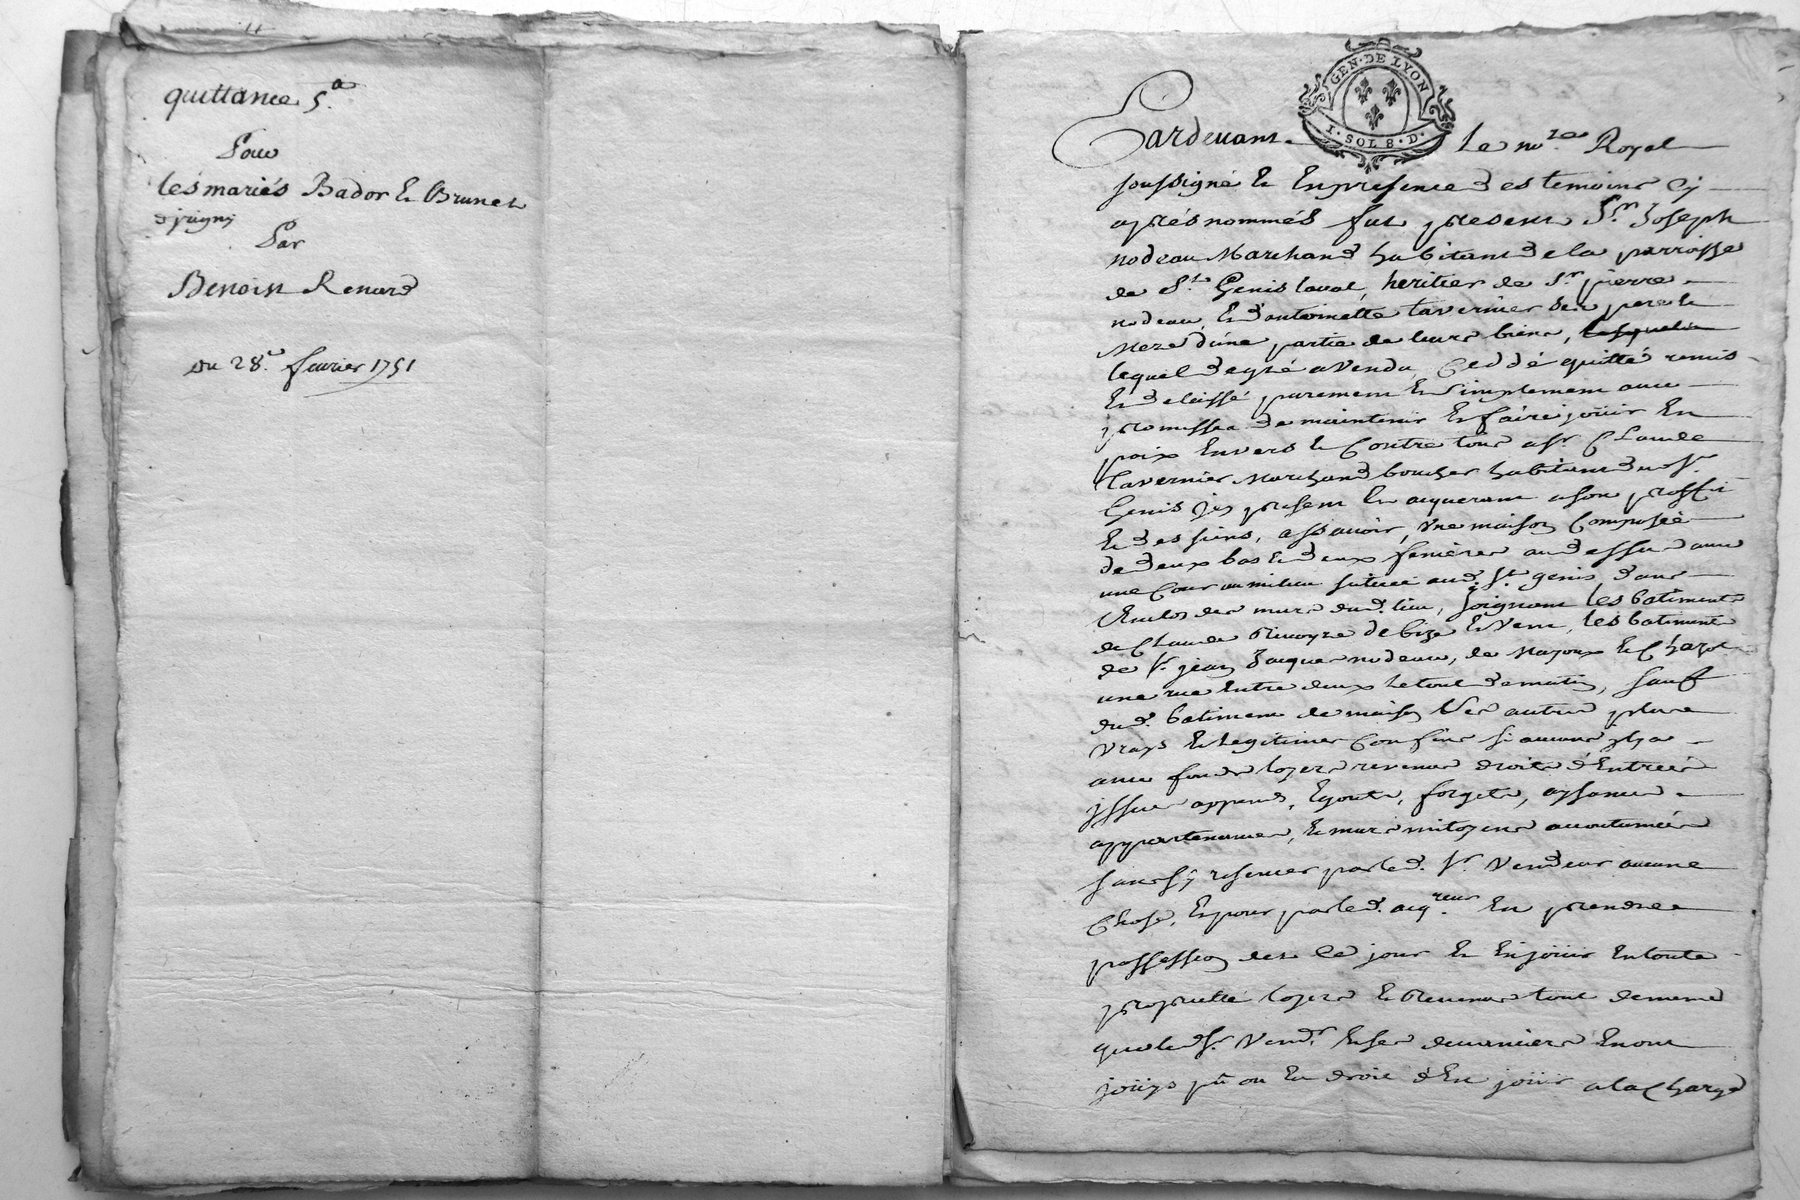 quittance 5.a
Pour
les mariés Bador et Brunet
d'jrigny
Par
Benoist Renard
du 28.e feurier 1751
GEN. DE LYON
1. SOL 8. D.
Pardeuant Le no.re Royal
soussigné et En presence des temoins Cy
aprés nommés fut present S.r Joseph
nodeau Marchand habitant de la parroisse
de S.t Genis laual, heritier de S.r pierre
nodeau, et d'antoinette tavernier ses pere et
Mere d'une partie de leurs biens,
lequel de gré a Vendu Ceddé quitté remis
et delaissé purement et simplement auec
promesse de maintenir et faire joüir En
paix Enuers et Contre tous a S.r Claude
Tavernier Marchand boucher habitant du S.t
Genis jcy present et aquerant a son proffit
et des siens, assauoir, Vne maison Composée
de deux bas et deux fenieres au dessus auec
une Cour au milieu situeé aud. S.t genis, dans
l'Enclos des murs dud. lieu, joignant les batiments
de Claude de bize et Vent, les batiments
de S.r jean Jacques nodeau, de et
une rue Entre deux le tout de matin, sauf
dud. batiment de maison les autres plus
Vrays et legitimes Confins si aucuns jl y a
auec fonds loyers reuenus droits d'Entreés
jssues appens, Egouts, forgets, aysances
appartenances, et murs mitoyens accoutumeés
sans s'y reseruer par led. S.r Vendeur aucune
Chose, Et pour par led. aq.reur En prendre
possession des Ce jour et En joüir En toute
proprieté loyers et Reuenus tout de meme
que led. S.r Vend.r et ses deuanciers En ont
joüys pû ou du droit d'En joüir a la Charge